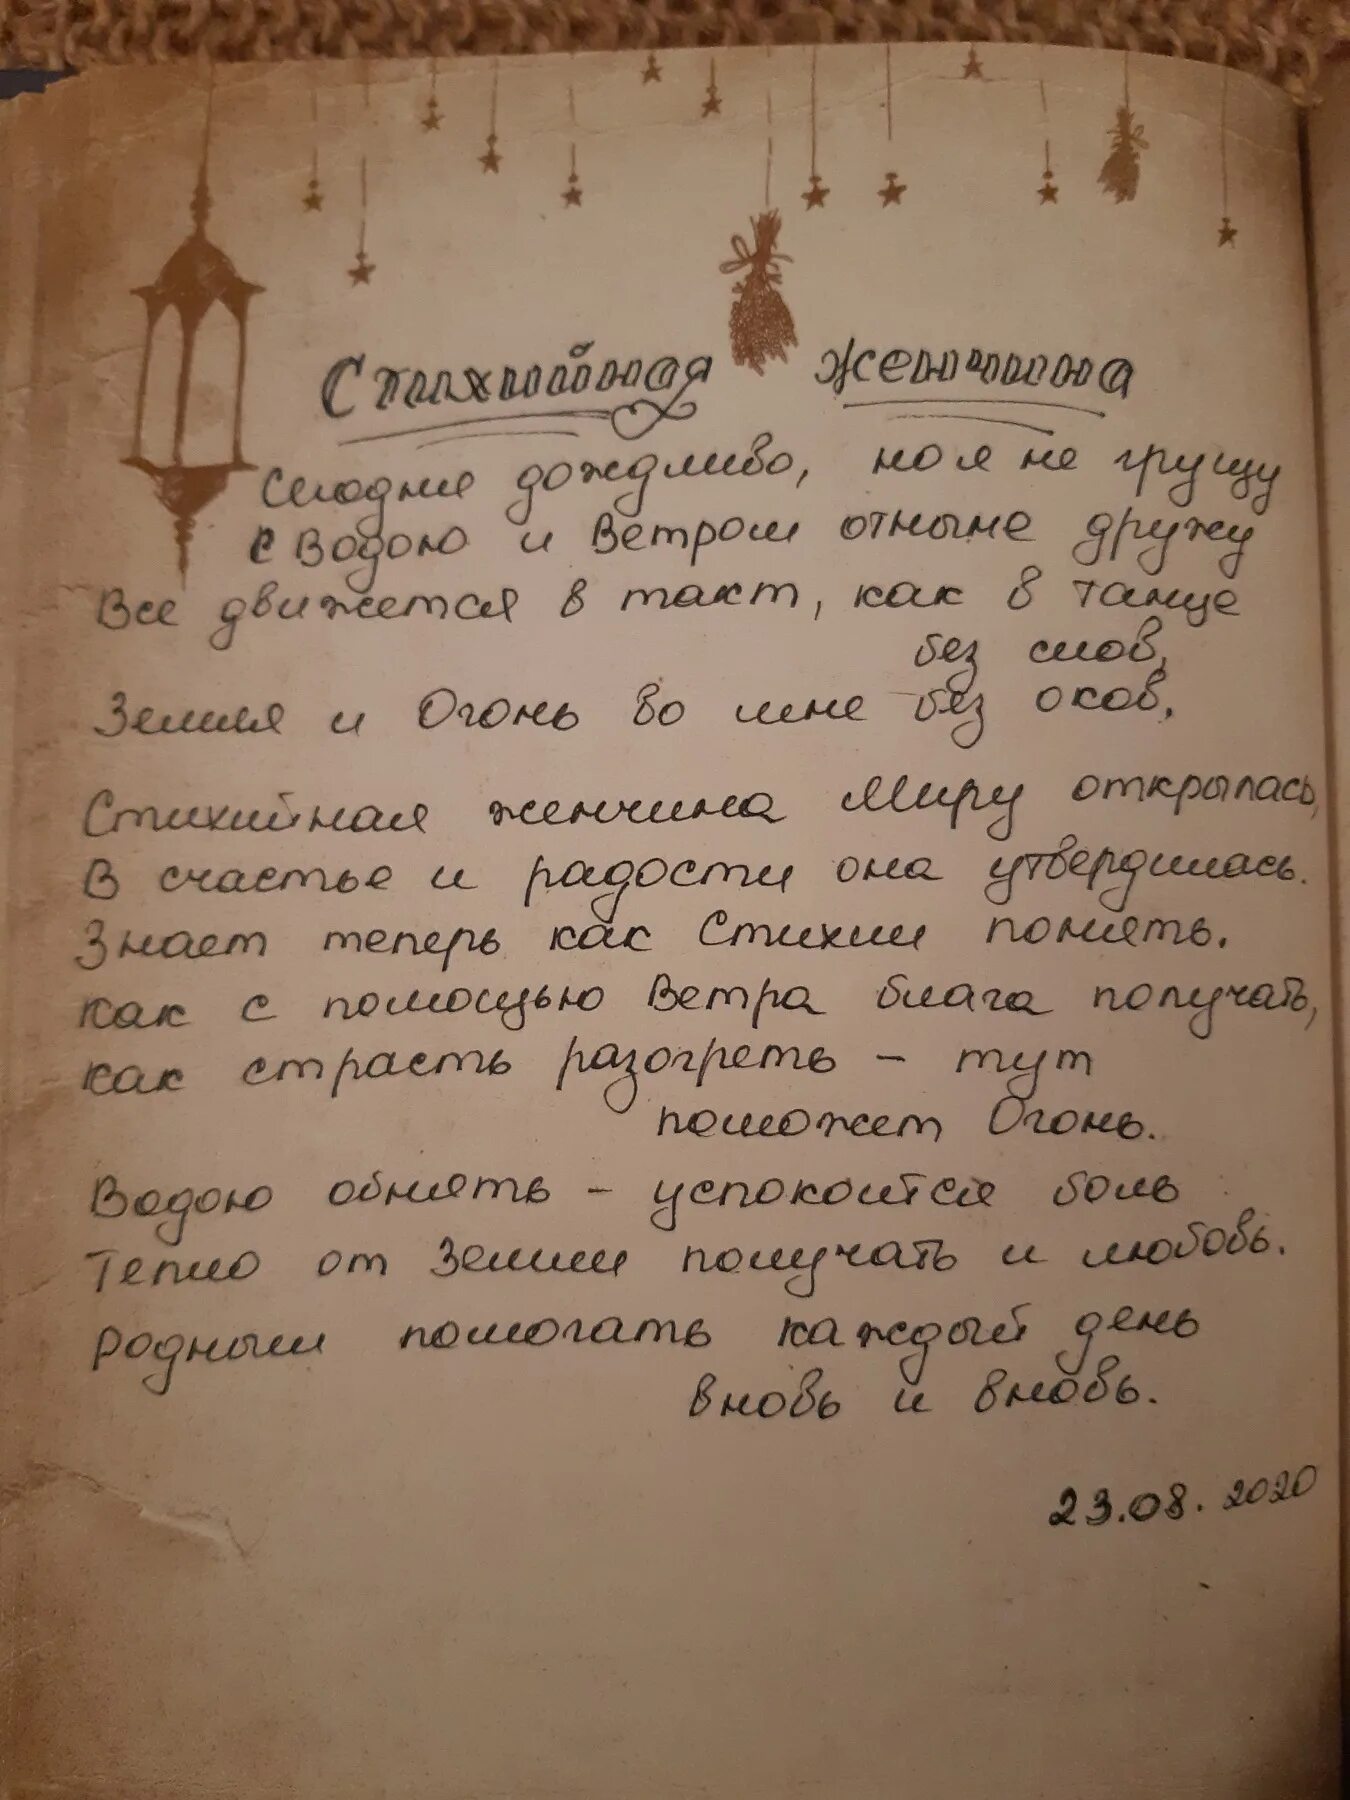 Стихийная женщина
Сегодня дождливо, но я не грущу
с Водою и Ветром отныне дружу
Все движется в такт, как в танце
без слов,
Земля и Огонь во мне без оков.
Стихийная женщина Миру открылась,
В счастье и радости она утвердилась.
Знает теперь как Стихии понять.
Как с помощью Ветра блага получать,
как страсть разогреть – тут
поможет Огонь.
Водою обнять – успокоится боль
Тепло от Земли получать и любовь.
Родным помогать каждый день
вновь и вновь.
23.08.2020